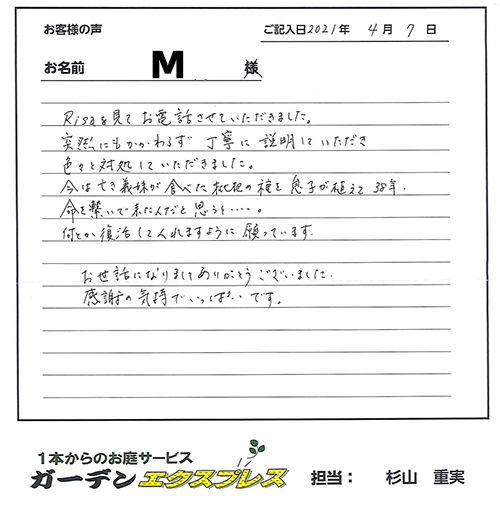 お客様の声
ご記入日2021年 4月 7日
お名前 M 様
Risaを見てお電話させていただきました。
突然にもかかわらず 丁寧に説明していただき
色々と対処していただきました。
今は亡き義妹が食べた枇杷の種を息子が植えて38年.
命を繋いで来たんだと思うと・・・・。
何とか復活してくれますように願っています.
お世話になりましてありがとうございました.
感謝の気持でいっぱいです。
1本からのお庭サービス
ガーデンエクスプレス 担当： 杉山 重実